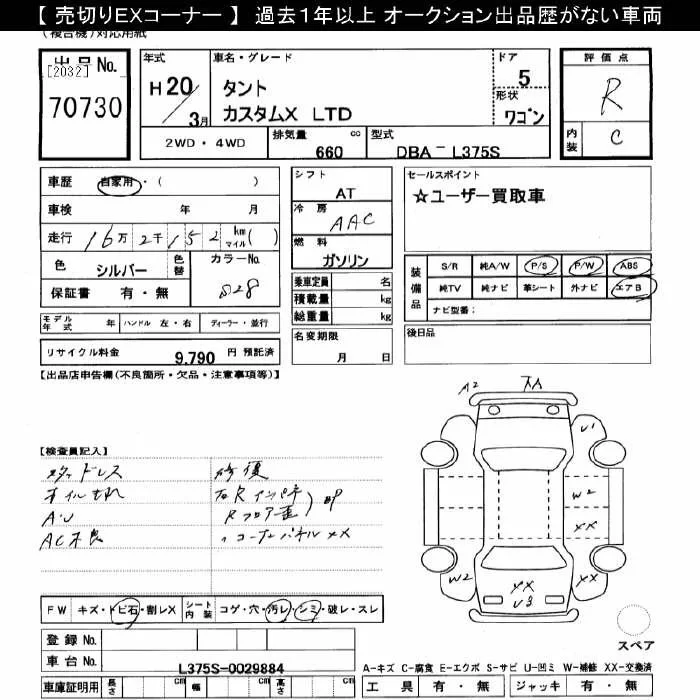 【 売切りEXコーナー 】 過去1年以上 オークション出品歴がない車両
(複合機)対応用紙
出品 No.
[2032]
70730
年式
H 20/3月
車名・グレード
タント
カスタムX LTD
ドア
5
形状
ワゴン
評価点
R
内装
C
2WD・4WD
排気量 660 cc
型式 DBA- L375S
車歴 自家用・( )
車検 年 月
走行 16万2千152 km マイル( )
色 シルバー 色替 カラーNo. S28
保証書 有・無
シフト
AT
冷房
AAC
燃料
ガソリン
乗車定員 名
積載量 kg
総重量 kg
セールスポイント
☆ユーザー買取車
装備品
S/R 純A/W P/S P/W ABS
純TV 純ナビ 革シート 外ナビ エアB
ナビ型番:
モデル年式 年 ハンドル 左・右 ディーラー・並行
名変期限
月 日
後日品
リサイクル料金 9,790 円 預託済
【出品店申告欄(不良箇所・欠品・注意事項等)】
【検査員記入】
オイル
AC不良
修復
コーナーパネル XX
A2
U1
W2
XX
W2
XX
U3
XX
FW キズ・トビ石・割レX シート内装 コゲ・穴・汚レ・シミ・破レ・スレ
スペア
登録 No.
車台 No. L375S-0029884
A-キズ C-腐食 E-エクボ S-サビ U-凹ミ W-補修 XX-交換済
車庫証明用 長さ cm 幅 cm 高さ cm
工具 有・無 ジャッキ 有・無